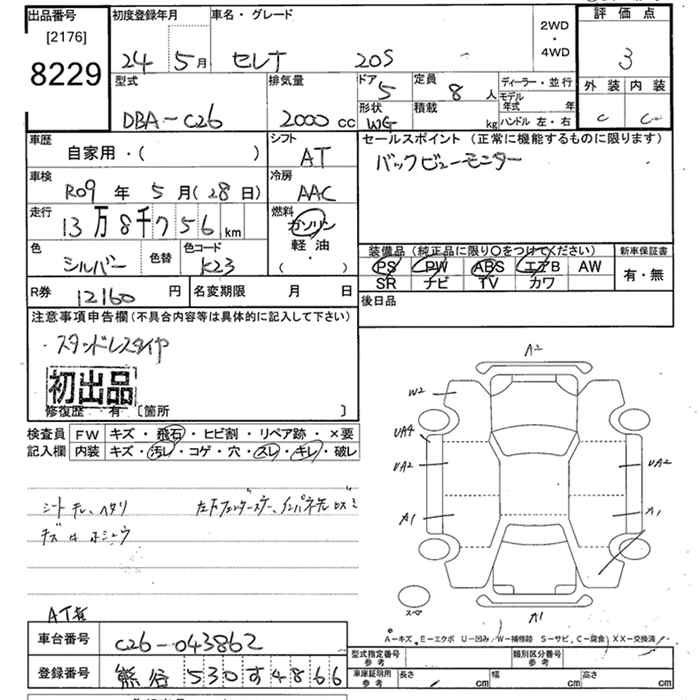 出品番号 初度登録年月 車名・グレード 2WD・4WD 評価点
[2176]
8229 24 5月 セレナ 20S 3
型式 排気量 ドア 5 定員 8人 ディーラー・並行 外装 内装
モデル年式 年
DBA-C26 2000cc 形状 WG 積載 kg ハンドル 左・右 C C
車歴 シフト セールスポイント (正常に機能するものに限ります)
自家用・( ) AT バックビューモニター
車検 R09年 5月(28日) 冷房 AAC
走行 13万8千756km 燃料 ガソリン
軽油
( )
色 シルバー 色替 色コード K23 装備品 (純正品に限り○をつけてください) 新車保証書
PS PW ABS エアB AW 有・無
SR ナビ TV カワ
R券 12160円 名変期限 月 日 後日品
注意事項申告欄(不具合内容等は具体的に記入して下さい)
・スタッドレスタイヤ
初出品
修復歴 有 [箇所 ]
検査員 FW キズ・飛石・ヒビ割・リペア跡・×要
記入欄 内装 キズ・汚レ・コゲ・穴・スレ・キレ・破レ
シート チレ、ヘタリ
A2
W2
UA4
UA2 UA2
A1 A1
スペア A1
A-キズ, E-エクボ U-凹み/W-補修跡 S-サビ, C-腐食) XX-交換済
車台番号 C26-043862
登録番号 熊谷 530 す 4866
型式指定番号 参考 類別区分番号 参考
車庫証明用 参考 長さ cm 幅 cm 高さ cm